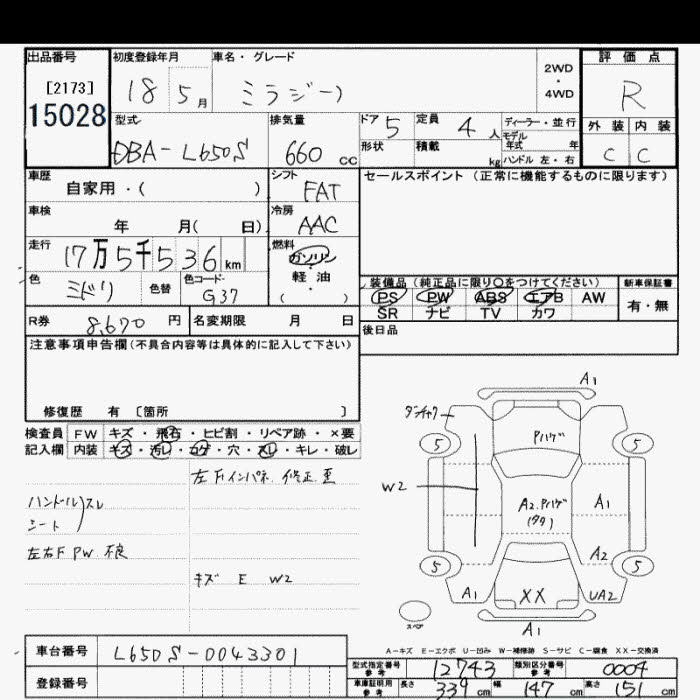 出品番号
[2173]
15028
初度登録年月
18 5月
車名・グレード
ミラジーノ
2WD
・
4WD
評価点
R
外装 内装
C C
型式
DBA-L650S
排気量
660 cc
ドア 5
定員 4 人
形状
積載 kg
ディーラー・並行
モデル年式 年
ハンドル 左・右
車歴
自家用・( )
シフト
FAT
車検
年 月( 日)
冷房
AAC
走行
17万5千536km
燃料
ガソリン
・
軽油
( )
色
ミドリ
色替
色コード
G37
セールスポイント(正常に機能するものに限ります)
装備品(純正品に限り○をつけてください)
PS PW ABS エアB AW
SR ナビ TV カワ
新車保証書
有・無
後日品
R券 8,670円
名変期限 月 日
注意事項申告欄(不具合内容等は具体的に記入して下さい)
修復歴 有 〔箇所 〕
検査員 FW キズ・飛石・ヒビ割・リペア跡・×要
記入欄 内装 キズ・汚レ・コゲ・穴・スレ・キレ・破レ
左Fインパネ 修正 歪
ハンドル スレ
シート
左右F PW 不良
キズ E W2
A1
5 5
Pハゲ
W2
A2.Pハゲ
(タタ)
A1
A2
5 5
A1 XX UA2
スペア
A1
A-キズ E-エクボ U-凹み W-補修跡 S-サビ C-腐食 XX-交換済
車台番号 L650S-0043301
登録番号
型式指定番号 参考 12743
類別区分番号 参考 0004
車庫証明用 参考 長さ 339 cm 幅 147 cm 高さ 151 cm